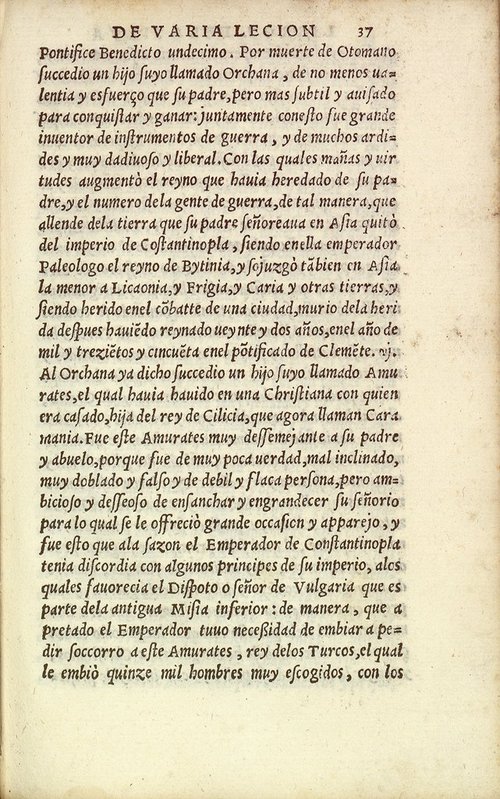 DE VARIA LECION 37
Pontifice Benedicto undecimo. Por muerte de Otomano
succedio un hijo suyo llamado Orchana, de no menos ua=
lentia y esfuerço que su padre, pero mas subtil y auisado
para conquistar y ganar: juntamente conesto fue grande
inuentor de instrumentos de guerra, y de muchos ardi=
des y muy dadiuoso y liberal. Con las quales mañas y uir
tudes augmentò el reyno que hauia heredado de su pa=
dre, y el numero dela gente de guerra, de tal manera, que
allende dela tierra que su padre señoreaua en Asia quitò
del imperio de Costantinopla, siendo enella emperador
Paleologo el reyno de Bytinia, y sojuzgò tãbien en Asia
la menor a Licaonia, y Frigia, y Caria y otras tierras, y
siendo herido enel cõbatte de una ciudad, murio dela heri
da despues hauiẽdo reynado ueynte y dos años, enel año de
mil y treziẽtos y cincuẽta enel põtificado de Clemẽte. vj.
Al Orchana ya dicho succedio un hijo suyo llamado Amu
rates, el qual hauia hauido en una Christiana con quien
era casado, hija del rey de Cilicia, que agora llaman Cara
mania. Fue este Amurates muy dessemejante a su padre
y abuelo, porque fue de muy poca uerdad, mal inclinado,
muy doblado y falso y de debil y flaca persona, pero am=
bicioso y desseoso de ensanchar y engrandecer su señorio
para lo qual se le offreciò grande occasion y apparejo, y
fue esto que ala sazon el Emperador de Constantinopla
tenia discordia con algunos principes de su imperio, alos
quales fauorecia el Dispoto o señor de Vulgaria que es
parte dela antigua Misia inferior: de manera, que a
pretado el Emperador tuuo necessidad de embiar a pe=
dir soccorro a este Amurates, rey delos Turcos, el qual
le embiò quinze mil hombres muy escogidos, con los